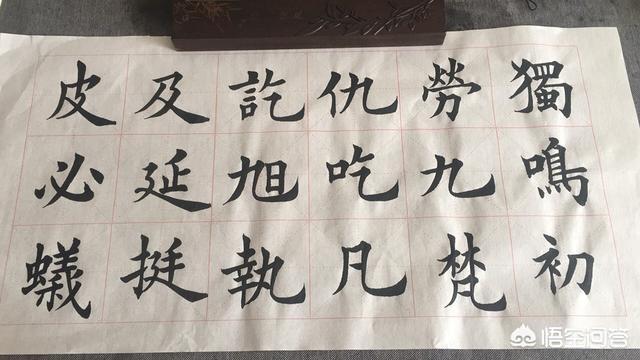 獨鳴初
勞九梵
仇吃凡
訖旭執
及延挺
皮必蟻
悟空问答